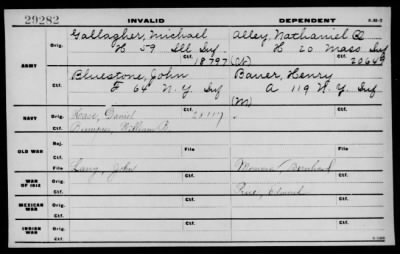 29282 INVALID DEPENDENT
Gallagher, Michael Alley, Nathaniel
ARMY Orig. H 59 Ill Inf H 20 Mass Inf
18797
Ctf. Bluestone, John Bauer, Henry
F 64 N.Y. Inf A 119 N.Y. Inf
(M)
NAVY Orig. Daniel 28117
Ctf. William
OLD WAR Rej.
Ctf. File File
WAR OF 1812 File Lang, John
Ctf.
MEXICAN WAR Orig. Edward
Ctf.
INDIAN WAR Orig.
Ctf.